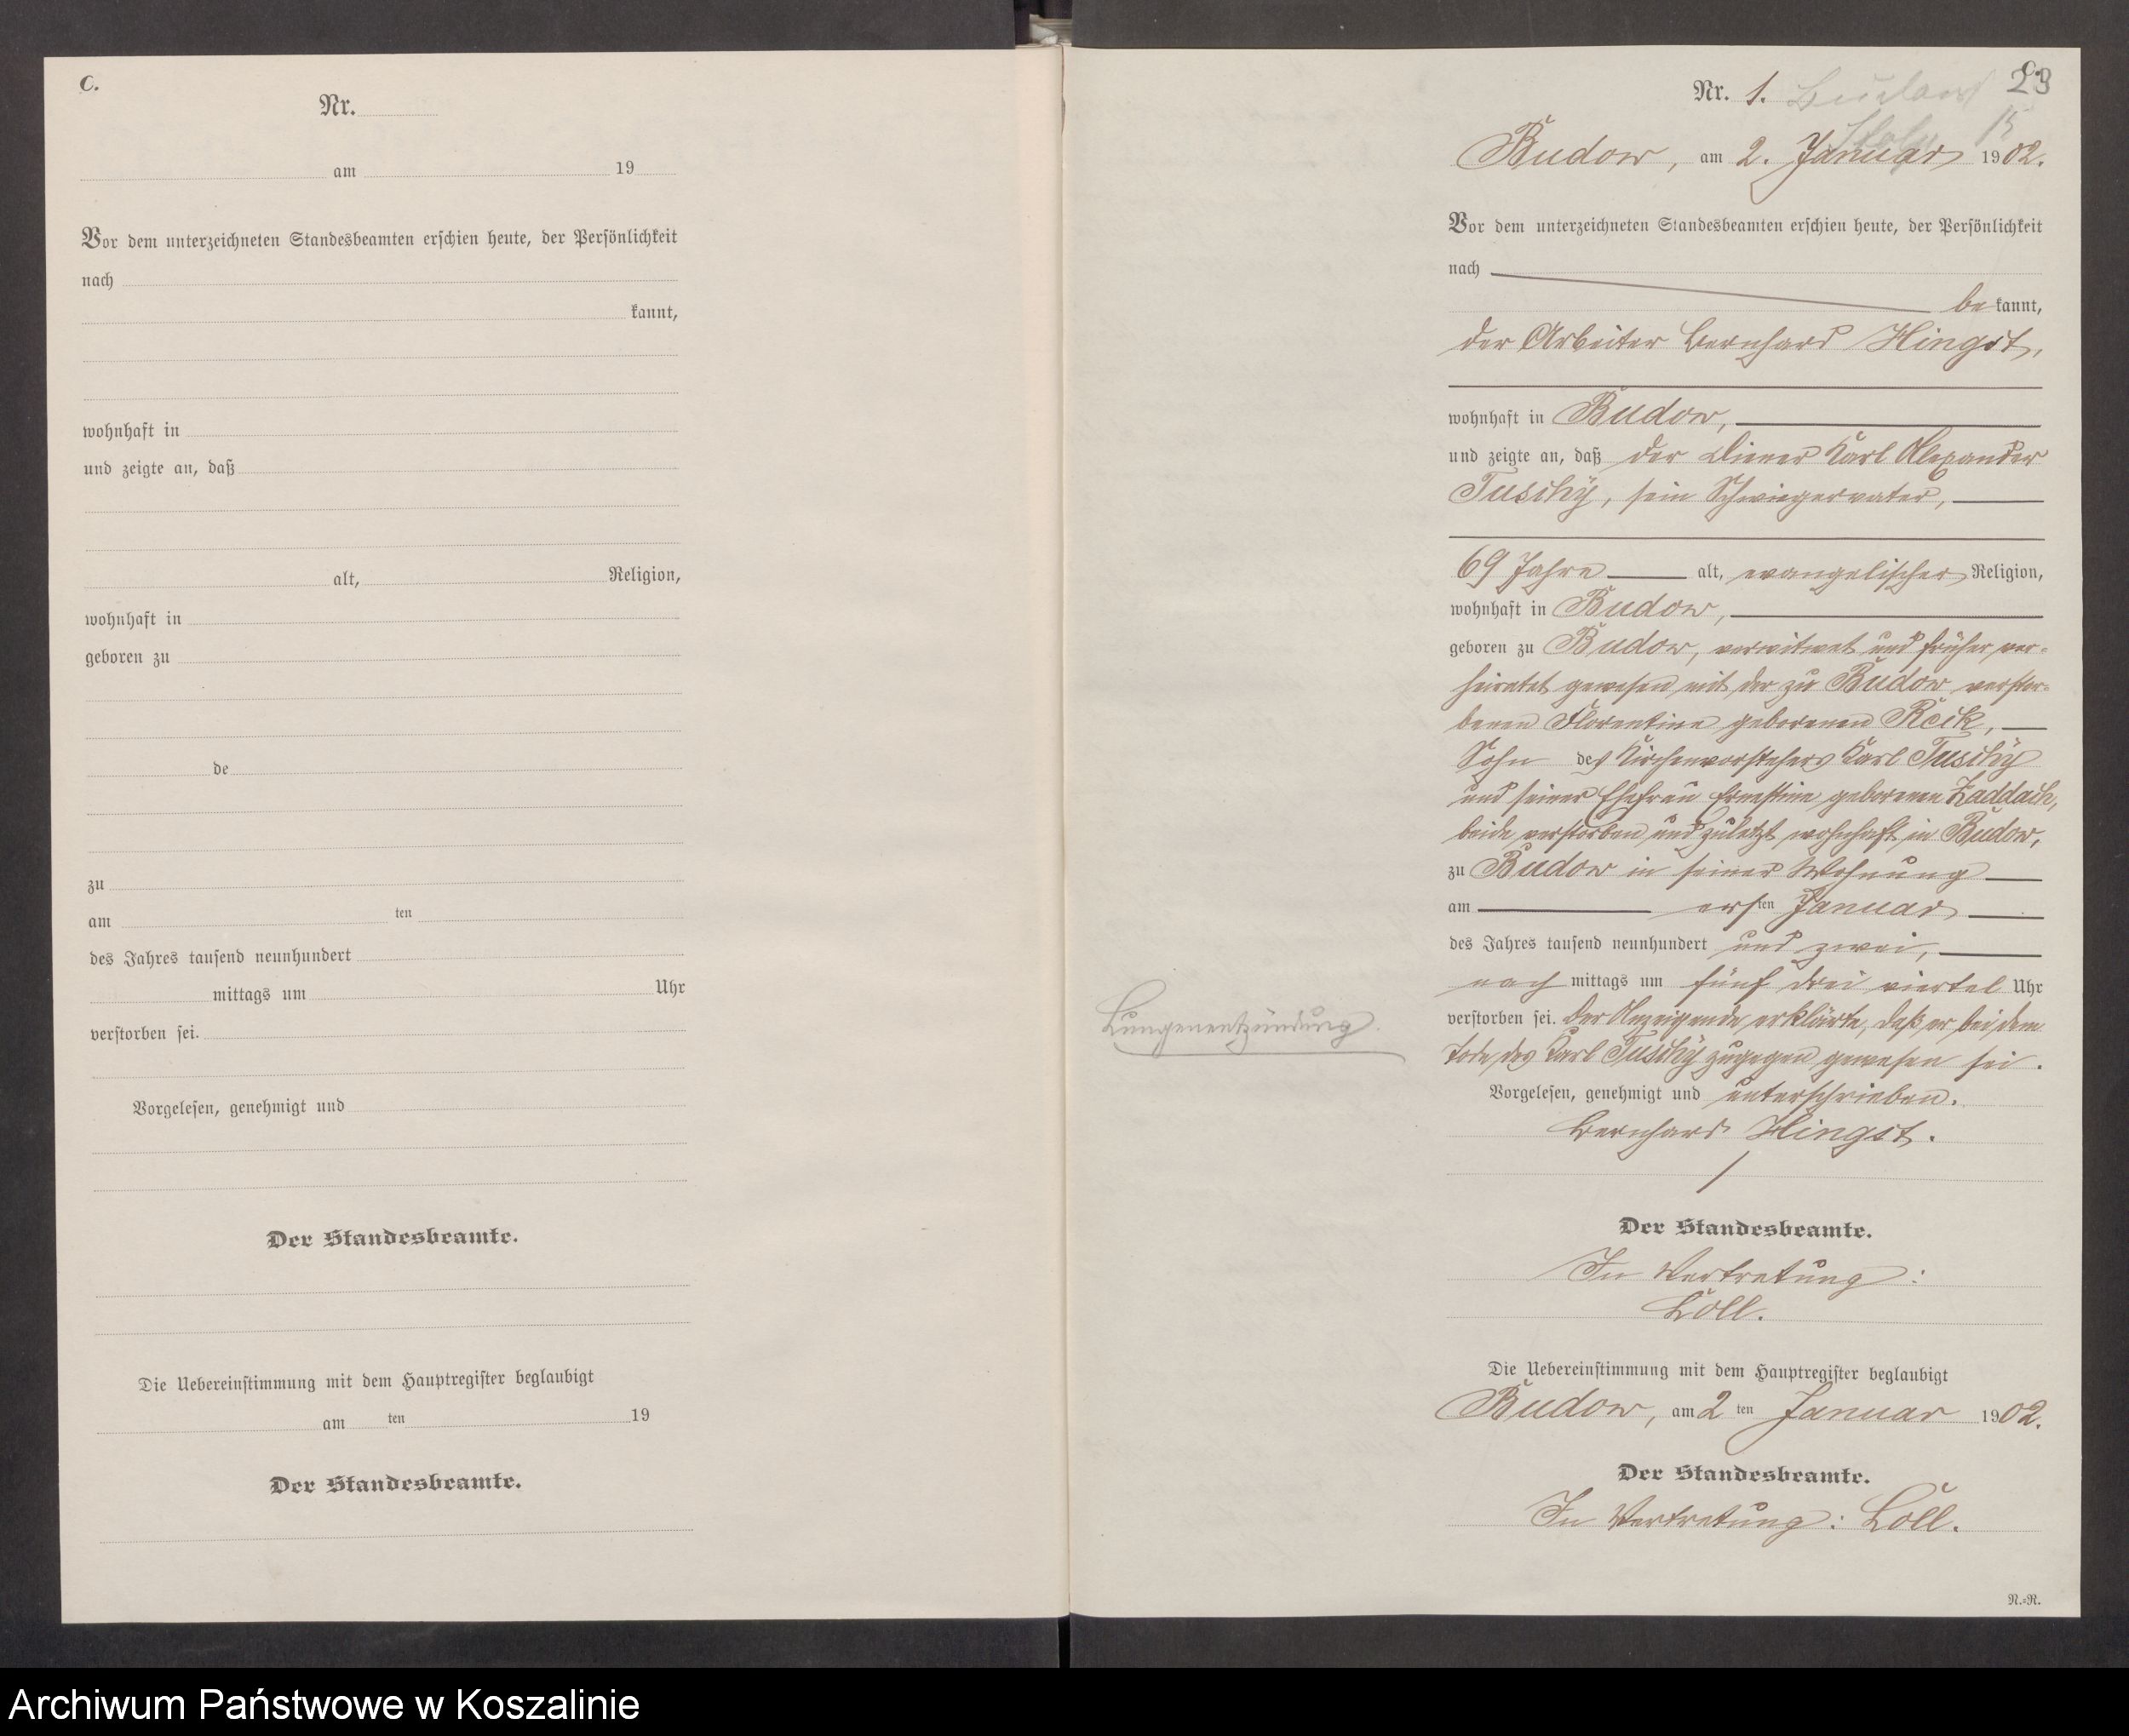 C.
Nr.
am 19
Vor dem unterzeichneten Standesbeamten erschien heute, der Persönlichkeit
nach
kannt,
wohnhaft in
und zeigte an, daß
alt, Religion,
wohnhaft in
geboren zu
de
zu
am ten
des Jahres tausend neunhundert
mittags um Uhr
verstorben sei.
Vorgelesen, genehmigt und
Der Standesbeamte.
Die Uebereinstimmung mit dem Hauptregister beglaubigt
am ten 19
Der Standesbeamte.
Lungenentzündung.
23
Nr. 1.
15
Budow, am 2. Januar 1902.
Vor dem unterzeichneten Standesbeamten erschien heute, der Persönlichkeit
nach
be kannt,
der Arbeiter Bernhard Hingst,
wohnhaft in Budow,
und zeigte an, daß der Diener Karl Alexander
Tuschÿ, sein Schwiegervater,
69 Jahre alt, evangelischer Religion,
wohnhaft in Budow,
geboren zu Budow, verwitwet und früher ver-
heiratet gewesen mit der zu Budow verstor-
benen Florentine geborenen Reik,
Sohn des Kirchenvorstehers Karl Tuschÿ
und seiner Ehefrau Ernestine geborenen Zaddach,
beide verstorben und zuletzt wohnhaft in Budow,
zu Budow in seiner Wohnung
am ersten Januar
des Jahres tausend neunhundert und zwei,
nach mittags um fünf drei viertel Uhr
verstorben sei. Der Anzeigende erklärte, daß er bei dem
Tode des Karl Tuschÿ zugegen gewesen sei.
Vorgelesen, genehmigt und unterschrieben.
Bernhard Hingst.
Der Standesbeamte.
In Vertretung:
Löll.
Die Uebereinstimmung mit dem Hauptregister beglaubigt
Budow, am 2 ten Januar 1902.
Der Standesbeamte.
In Vertretung: Löll.
N.=R.
Archiwum Państwowe w Koszalinie